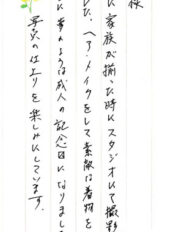 様
に家族が揃った時にスタジオにて撮影
しひ、ヘア・メイクをして素敵な着物を
に夢のような成人の記念日になりました
写真の仕上りを楽しみにしています。